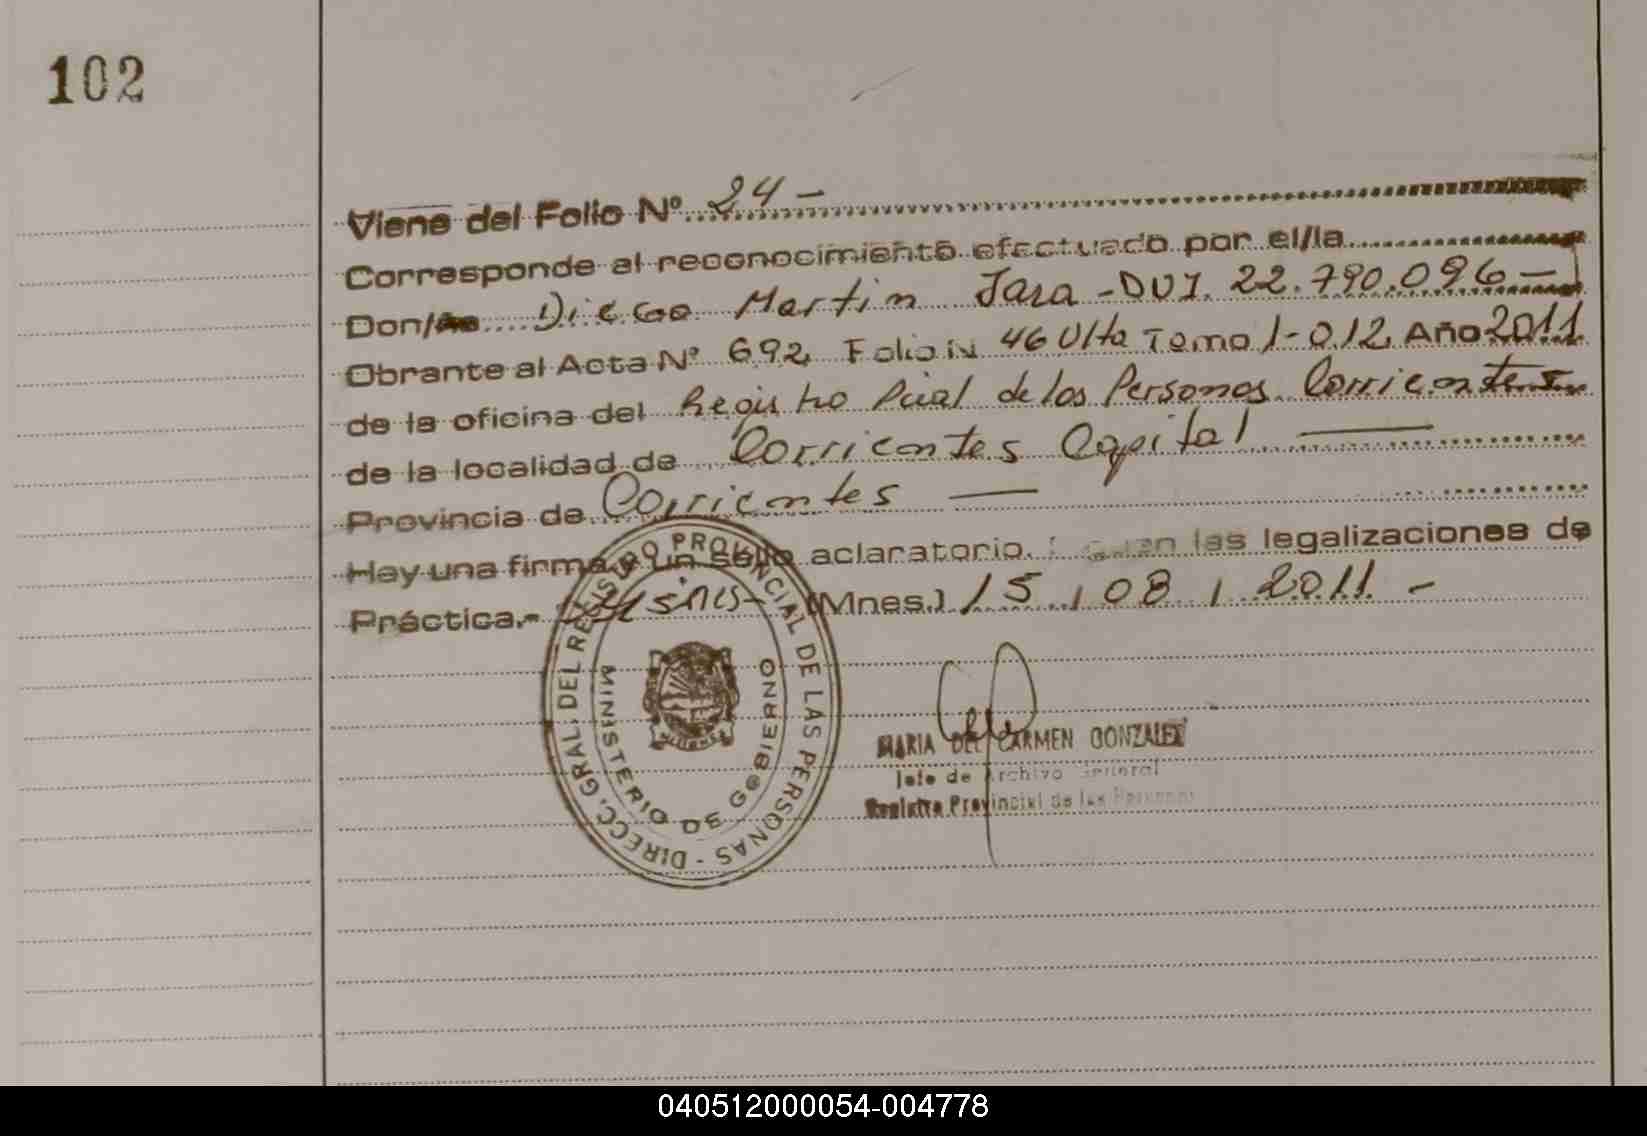 102
Viene del Folio Nº 24 -
Corresponde al reconocimiento efectuado por el/la
Don/ Diego Martin Jara - DNI. 22.790.096 -
Obrante al Acta Nº 692 Folio N 46 Vlta Tomo 1-012 Año 2011
de la oficina del Registro Pcial de las Personas Corrientes
de la localidad de Corrientes Capital
Provincia de Corrientes
Hay una firma y un sello aclaratorio. las legalizaciones de
Práctica.- (Mnes.) 15 / 08 / 2011 -
DIRECC. GRAL. DEL REGISTRO PROVINCIAL DE LAS PERSONAS -
MINISTERIO DE GOBIERNO
MISIONES
MARIA DEL CARMEN GONZALEZ
Jefe de Archivo General
Registro Provincial de las Personas
040512000054-004778